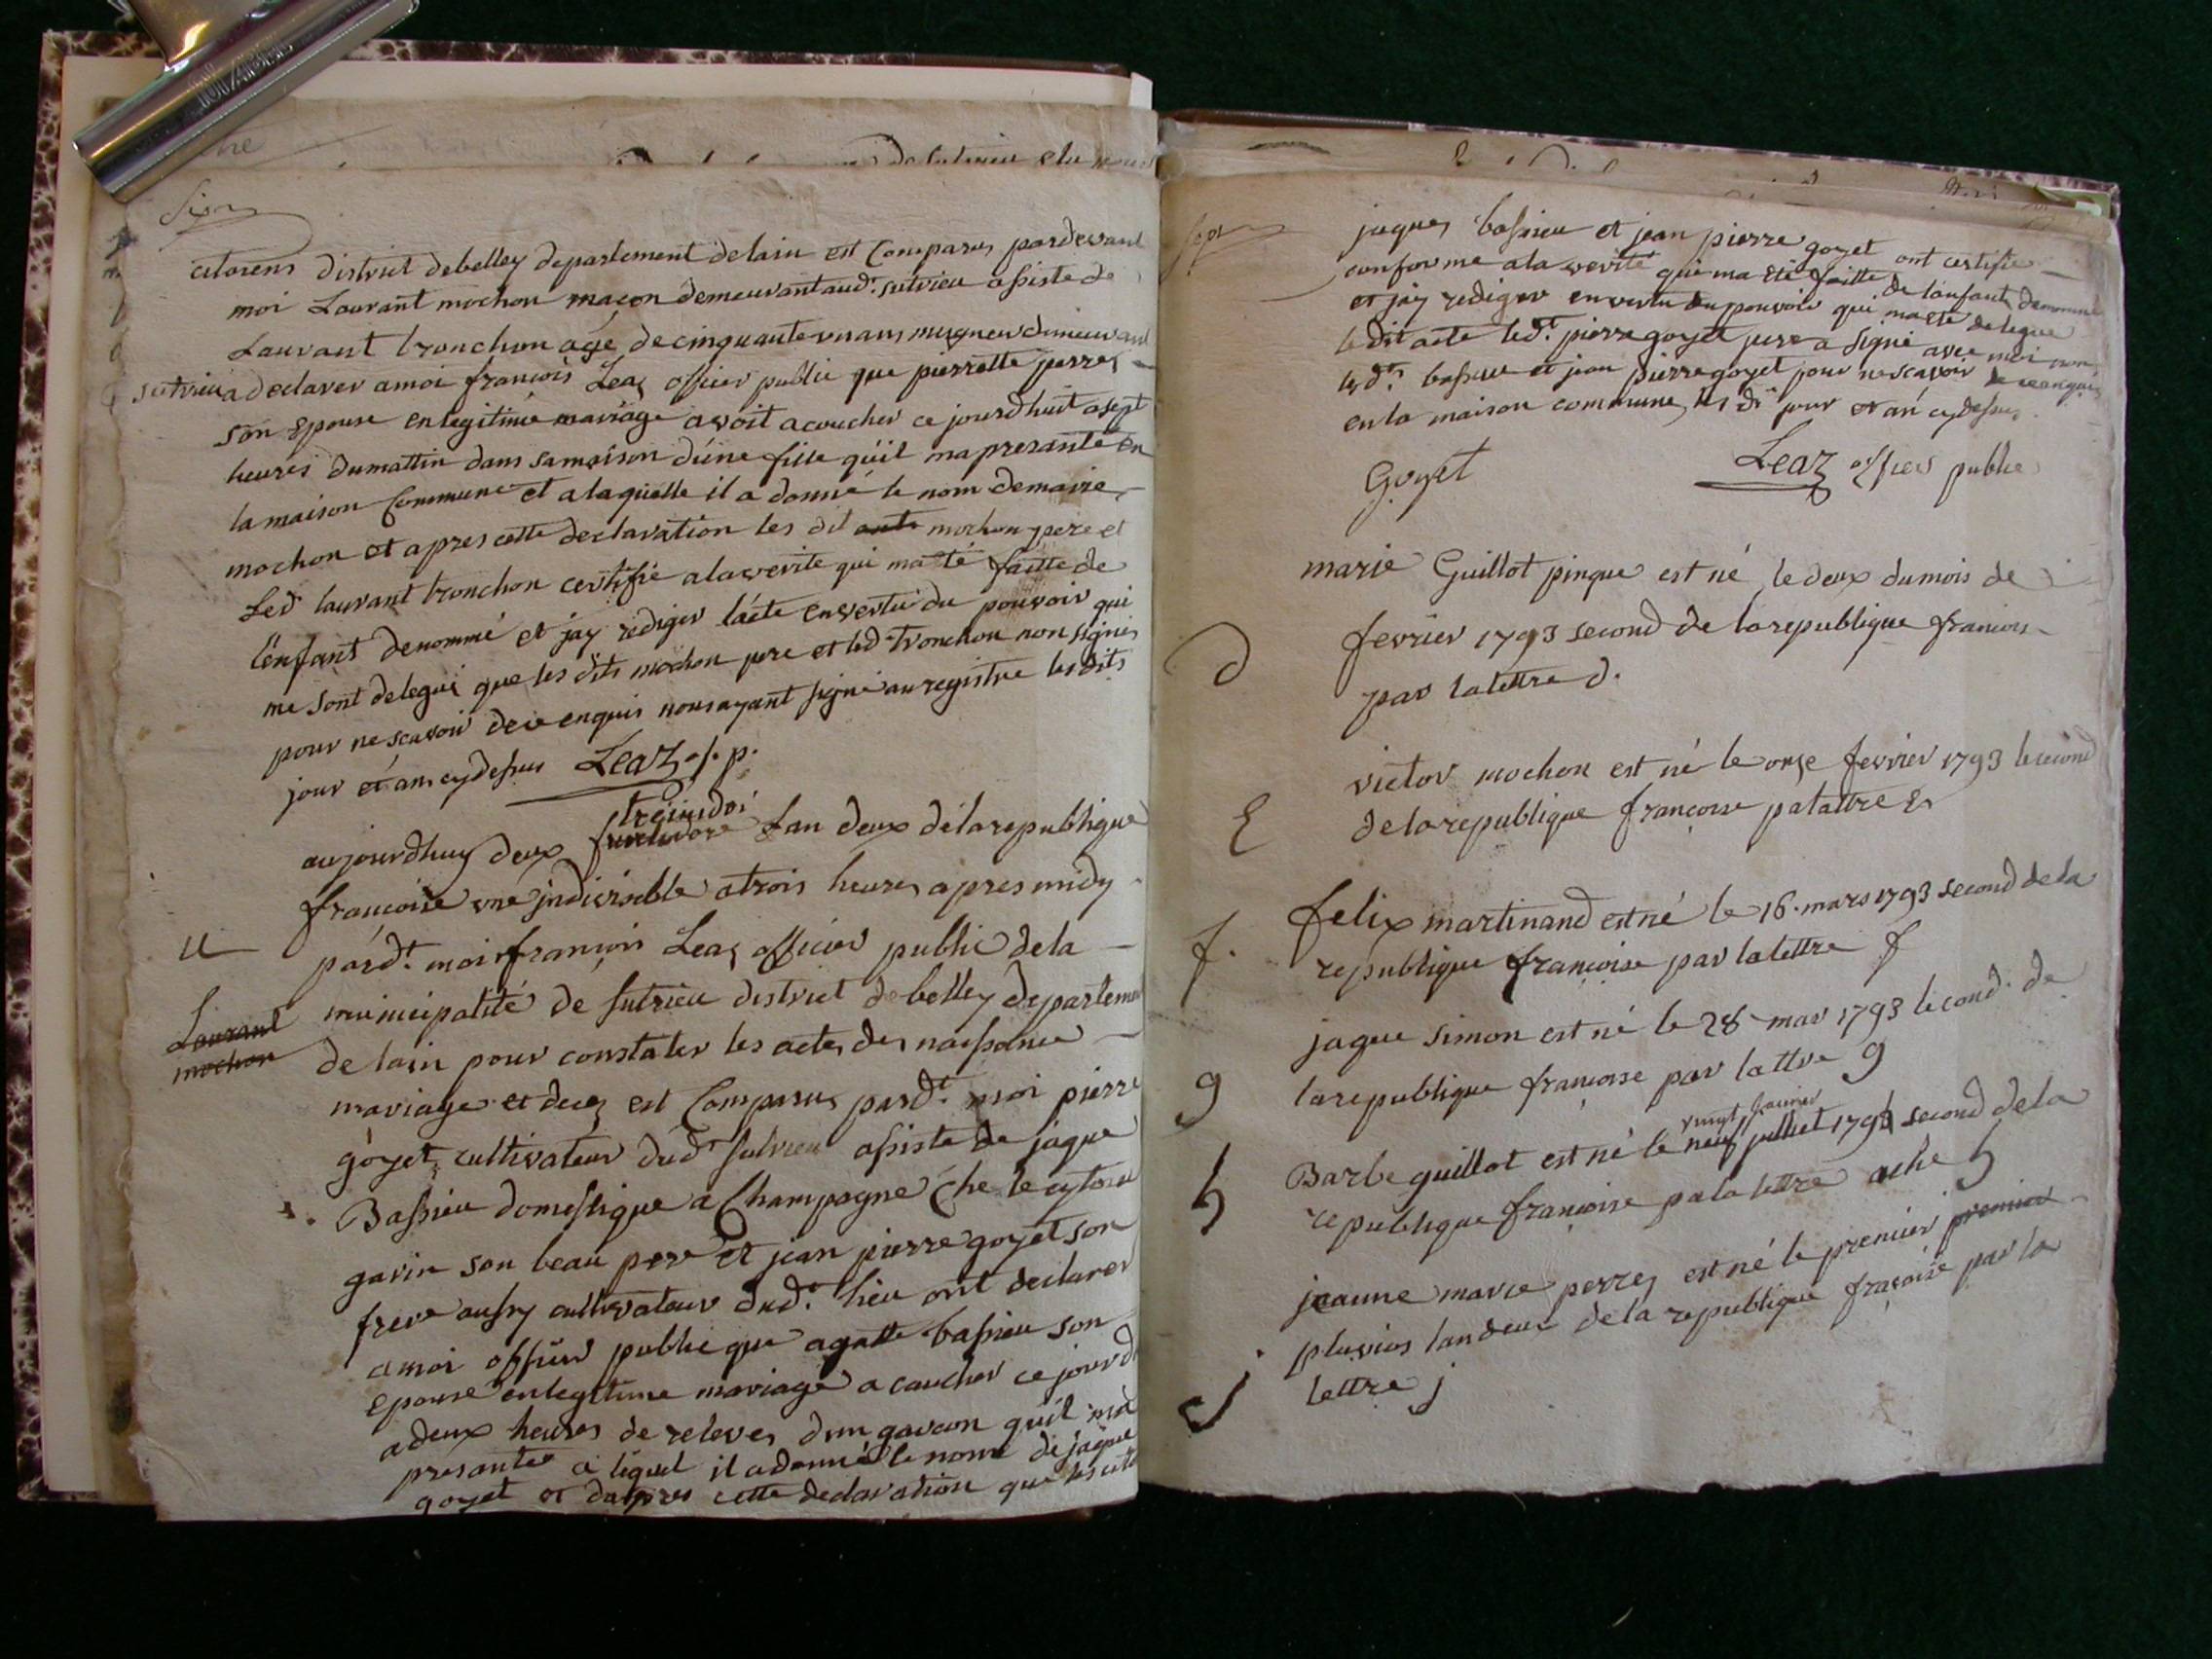 de Sutrieu
Six
citoiens district debelley departement delain est Comparus pardevant
moi Laurant mochon maçon demeurant aud. sutrieu asiste de
Laurant tronchon agé de cinquante un ans
sutrieu a declarer amoi francois Leaz officier public que pierrette perres
son Epouse en legitime mariage avoit acoucher ce jourdhuit a sept
heures dumattin dans sa maison d'une fille qu'il ma presanté En
la maison Commune et alaquelle il a donné le nom demarie
mochon et apres cette declaration les dit mochon pere et
Led laurant tronchon certifié ala verite qui ma été faitte de
L'enfant denommé et jay rediger lacte en vertu du pouvoir qui
me sont delegué que les dits mochon pere et led. tronchon non signés
pour ne scavoir de ce enquis nous ayant signé au registre les dits
jour et an cydesus Leaz o. p.
aujourdhuy deux Lan deux delarepublique
francoise une jndivisible atrois heures apres midy
u
pardt. moi francois Leaz officier public dela
municipalité de Sutrieu district de belley departemen
Laurant
mochon
de lain pour constater les actes des naissance
mariage et deces est Comparus pardt. moi pierre
goyet cultivateur dudt Sutrieu asiste de jaque
Bassieu domestique a Champagne che le cytoien
gavin son beau pere et jean pierre goyet son
frere aussy cultivateur dudt. lieu ont declarer
amoi officier public que agatte bassieu son
epouse en legitime mariage a caucher ce jour d
a deux heures de releves d'un garcon qu'il ma
presanter a lequel il adonné le nome de jaque
goyet et dapres cette declaration que les cito
Sept
jaques bassieu et jean pierre goyet ont certifie
conforme ala verité qui ma eté faitte de lanfant denommé
et jay rediger en vertu du pouvoir qui ma eté delegue
le dit acte ledt. pierre goyet pere a signé avec moi non
lesdts. bassieu et jean pierre goyet pour ne scavoir de ce enquis
en la maison commune les dt jour et an cydessus
Goyet Leaz officier public
marie Guillot pinque est né le deux dumois de
d
fevrier 1793 second de la republique francois
par la lettre d.
victor mochon est né le onze fevrier 1793 le second
E
de la republique francoise pa lattre E
felix martinand est né le 16. mars 1793 second de la
f.
republique françoise par la lettre f
jaque simon est né le 28 mar 1793 second de
g
la republique francoise par lattre g
vingt janvier
Barbe guillot est né le neuf julliet 1793 second de la
h
republique françoise pa la lettre ache h
jeanne marie perres est né le premier premier
pluvios lan deux de la republique fraçoise par la
j
lettre j